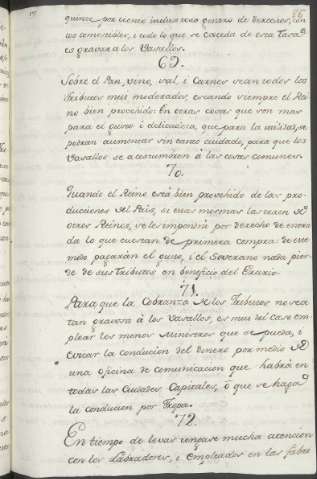 quince por ciento inclusive o genero de Derechos, con
los comestibles, i todo lo que se exceda de esta Tasa
es gravar a los Vasallos.
69.
Sobre el Pan, vino, sal, i Carnes sean todos los
Tributos mui moderados, estando siempre el Rei-
no bien provehido: En otras cosas que son mas
para el gusto i delicadeza, que para la utilidad, se
podran aumentar sin tanto cuidado, para que los
Vasallos se acostumbren à las cosas comunes.
70.
Quando el Reino está bien provehido de las pro-
ducciones del Pais, si estas mesmas las traen de
otros Reinos, se les impondrà por derecho de entra-
da lo que cuestan de primera compra: de este
modo pagaràn el gusto, i el Soberano nada pier-
de de sus Tributos en beneficio del Erario.
71.
Para que la Cobranza de los Tributos no sea
tan gravosa à los Vasallos, es mui del caso em-
plear los menos Ministros que se pueda, i
evitar la conducion del dinero por medio de
una oficina de comunicacion que habrá en
todas las Ciudades Capitales, ò que se haga
la conducion por Tropa.
72.
En tiempo de levas tengase mucha atencion
con los Labradores, i empleados en las fabri